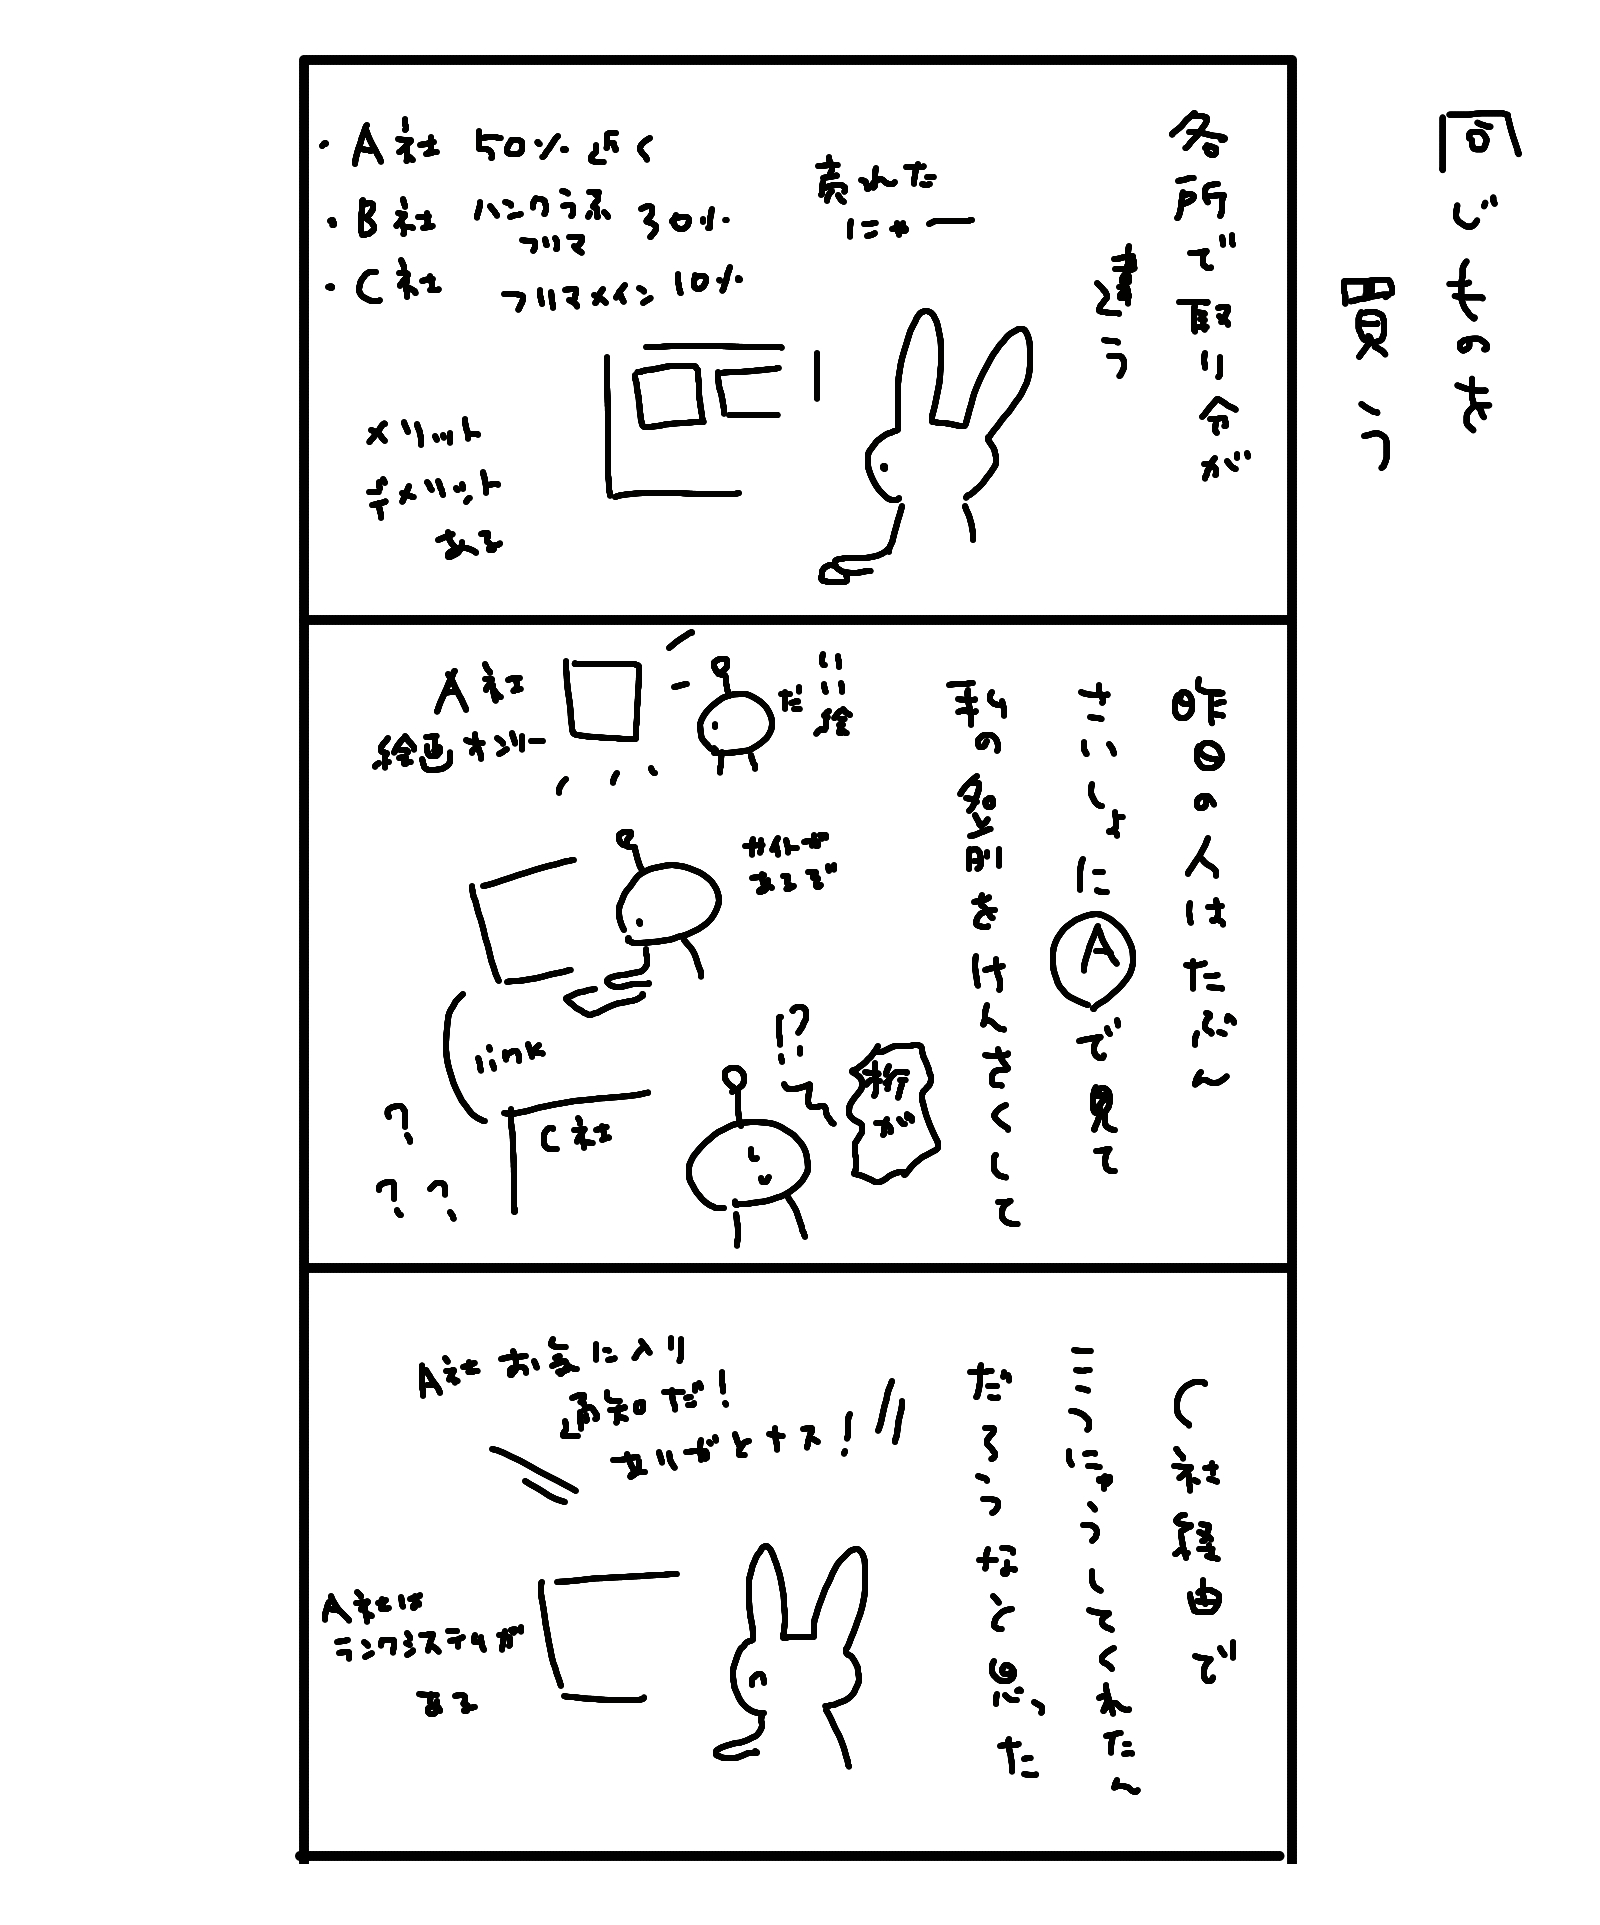 同じものを
買う
各所で取り分が
違う
売れた
にゃー
・A社 50%近く
・B社 ハンクラ系
フリマ 30%
・C社 フリマメイン 10%
メリット
デメリット
ある
昨日の人はたぶん
さいしょにAで見て
私の名前をけんさくして
いい絵
だ
A社
絵画オンリー
サイトが
あるぞ
link
C社
!?
桁
が
?
? ?
C社経由で
こうにゅうしてくれたん
だろうなと思った
A社お気に入り
通知だ!
ありがとナス!
A社は
ランクシステムが
ある